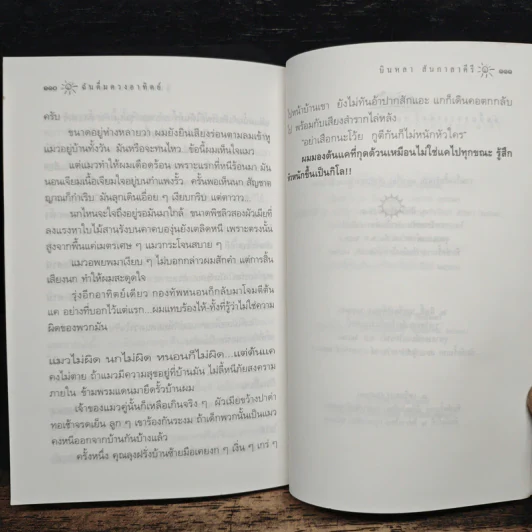 ๑๑๐ ฉันดื่มดวงอาทิตย์
ครับ
ขนาดอยู่ห่างหลายวา ผมยังยินเสียงร่อนตามลมเข้าหู
แมวอยู่บ้านทั้งวัน มันหรือจะทนไหว ข้อนี้ผมเห็นใจแมว
แต่แมวทำให้ผมเดือดร้อน เพราะแรกที่หนีร้อนมา มัน
นอนเจียมเนื้อเจียมใจอยู่บนกำแพงรั้ว ครั้นพอเห็นนก สัญชาต
ญาณก็กำเริบ มันลุกเดินเอื่อย ๆ เงียบกริบ แต่ตาวาว...
นกไหนจะใจถึงอยู่รอมันมาใกล้ ขนาดพิชสิวสองผัวเมียที่
ลงแรงหาใบไม้สานรังบนคาคบองุ่นยังเตลิดหนี เพราะตรงนั้น
สูงจากพื้นแค่เมตรเศษ ๆ แมวกระโจนสบาย ๆ
แมวอพยพมาเงียบ ๆ ไม่บอกกล่าวผมสักคำ แต่การสิ้น
เสียงนก ทำให้ผมสะดุดใจ
รุ่งอีกอาทิตย์เดียว กองทัพหนอนก็กลับมาโจมตีต้น
แค อย่างที่บอกไว้แต่แรก...ผมแทบร้องไห้-ทั้งที่รู้ว่าไม่ใช่ความ
ผิดของพวกมัน
แมวไม่ผิด นกไม่ผิด หนอนก็ไม่ผิด...แต่ต้นแค
คงไม่ตาย ถ้าแมวมีความสุขอยู่ที่บ้านมัน ไม่ลี้หนีภัยสงคราม
ภายใน ข้ามพรมแดนมายึดรั้วบ้านผม
เจ้าของแมวคู่นั้นก็เหลือเกินจริง ๆ ผัวเมียขว้างปาด่า
ทอเช้าจรดเย็น ลูก ๆ เขาร้องกันระงม ถ้าเด็กพวกนั้นเป็นแมว
คงหนีออกจากบ้านกันบ้างแล้ว
ครั้งหนึ่ง คุณลุงฝรั่งบ้านซ้ายมือเดยงก ๆ เงิ่น ๆ เกร่ ๆ
บินหลา สันกาลาคีรี ๑๑๑
ไปหน้าบ้านเขา ยังไม่ทันอ้าปากสักแอะ แกก็เดินคอตกกลับ
ไป พร้อมกับเสียงสำรากไล่หลัง
"อย่าเสือกนะโว้ย กูตีกันก็ไม่หนักหัวใคร"
ผมมองต้นแคที่กุดด้วนเหมือนไม่ใช่แคไปทุกขณะ รู้สึก
หัวหนักขึ้นเป็นกิโล!!